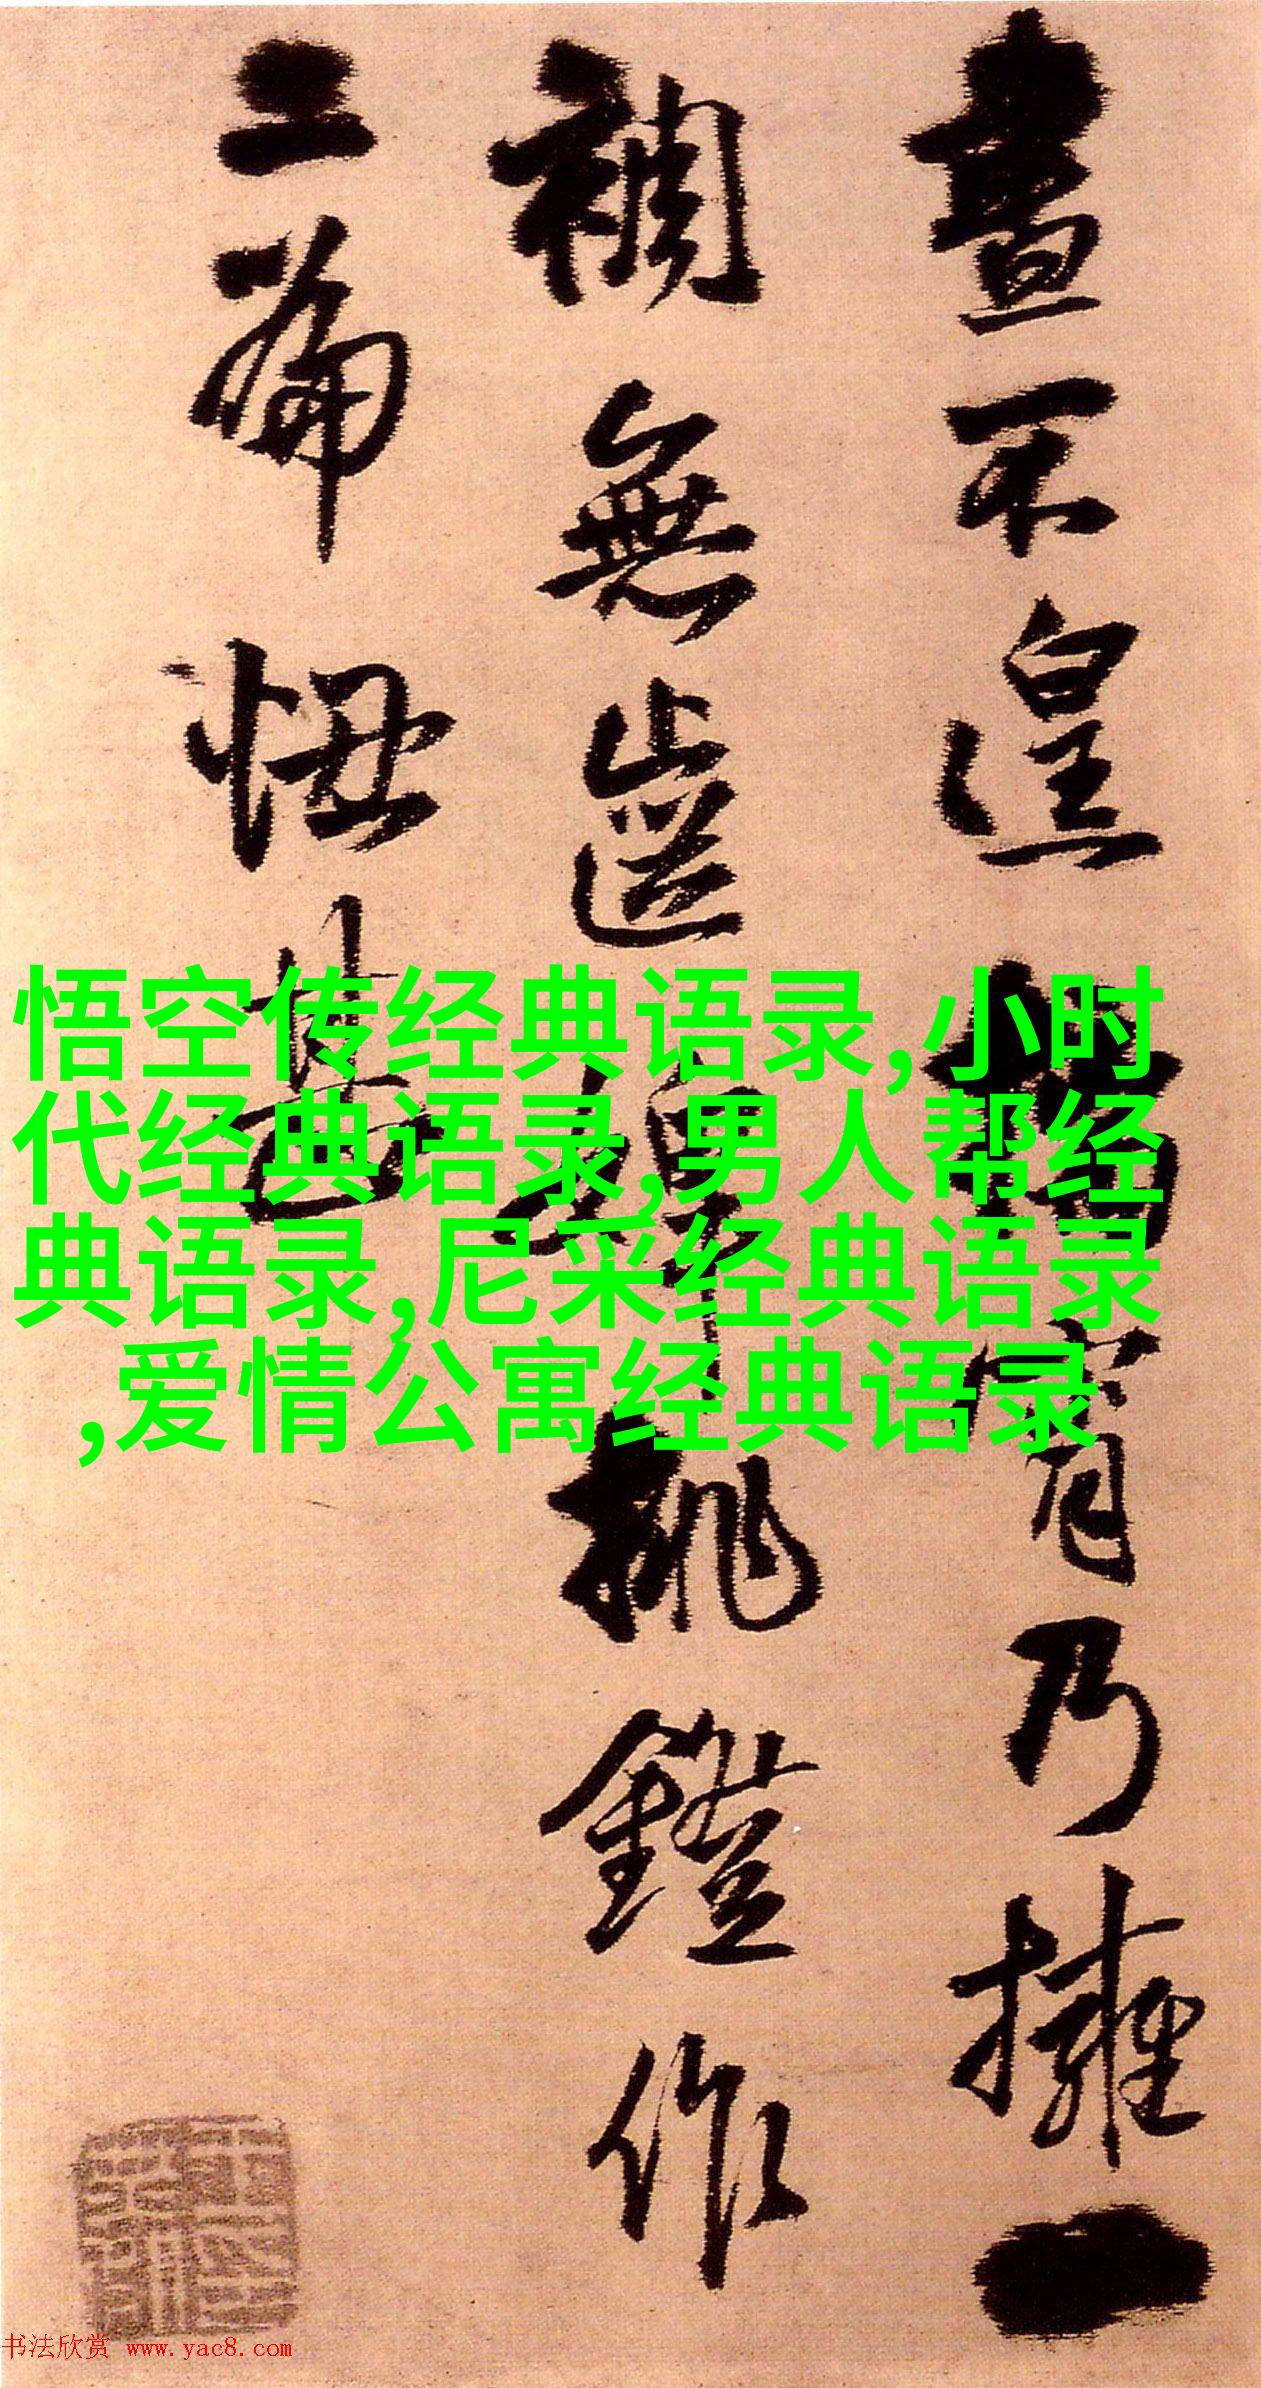 晝不遑宵乃擁一
裯無齒婢挑鐙作
篇甚
悟空传经典语录,小时
代经典语录,男人帮经
典语录,尼采经典语录
,爱情公寓经典语录
书法欣赏 www.yac8.com